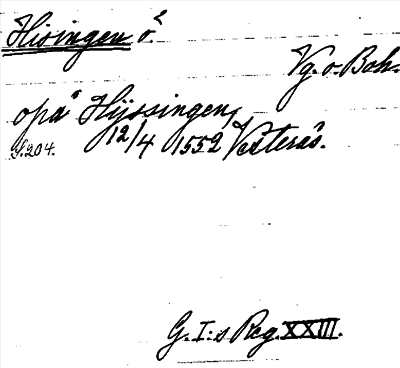 Hisingen ö.
Vg. o. Boh.
opå Hijssingen,
s. 204. 12/4 1552 Vesterås.
G. I:s Reg. XXIII.